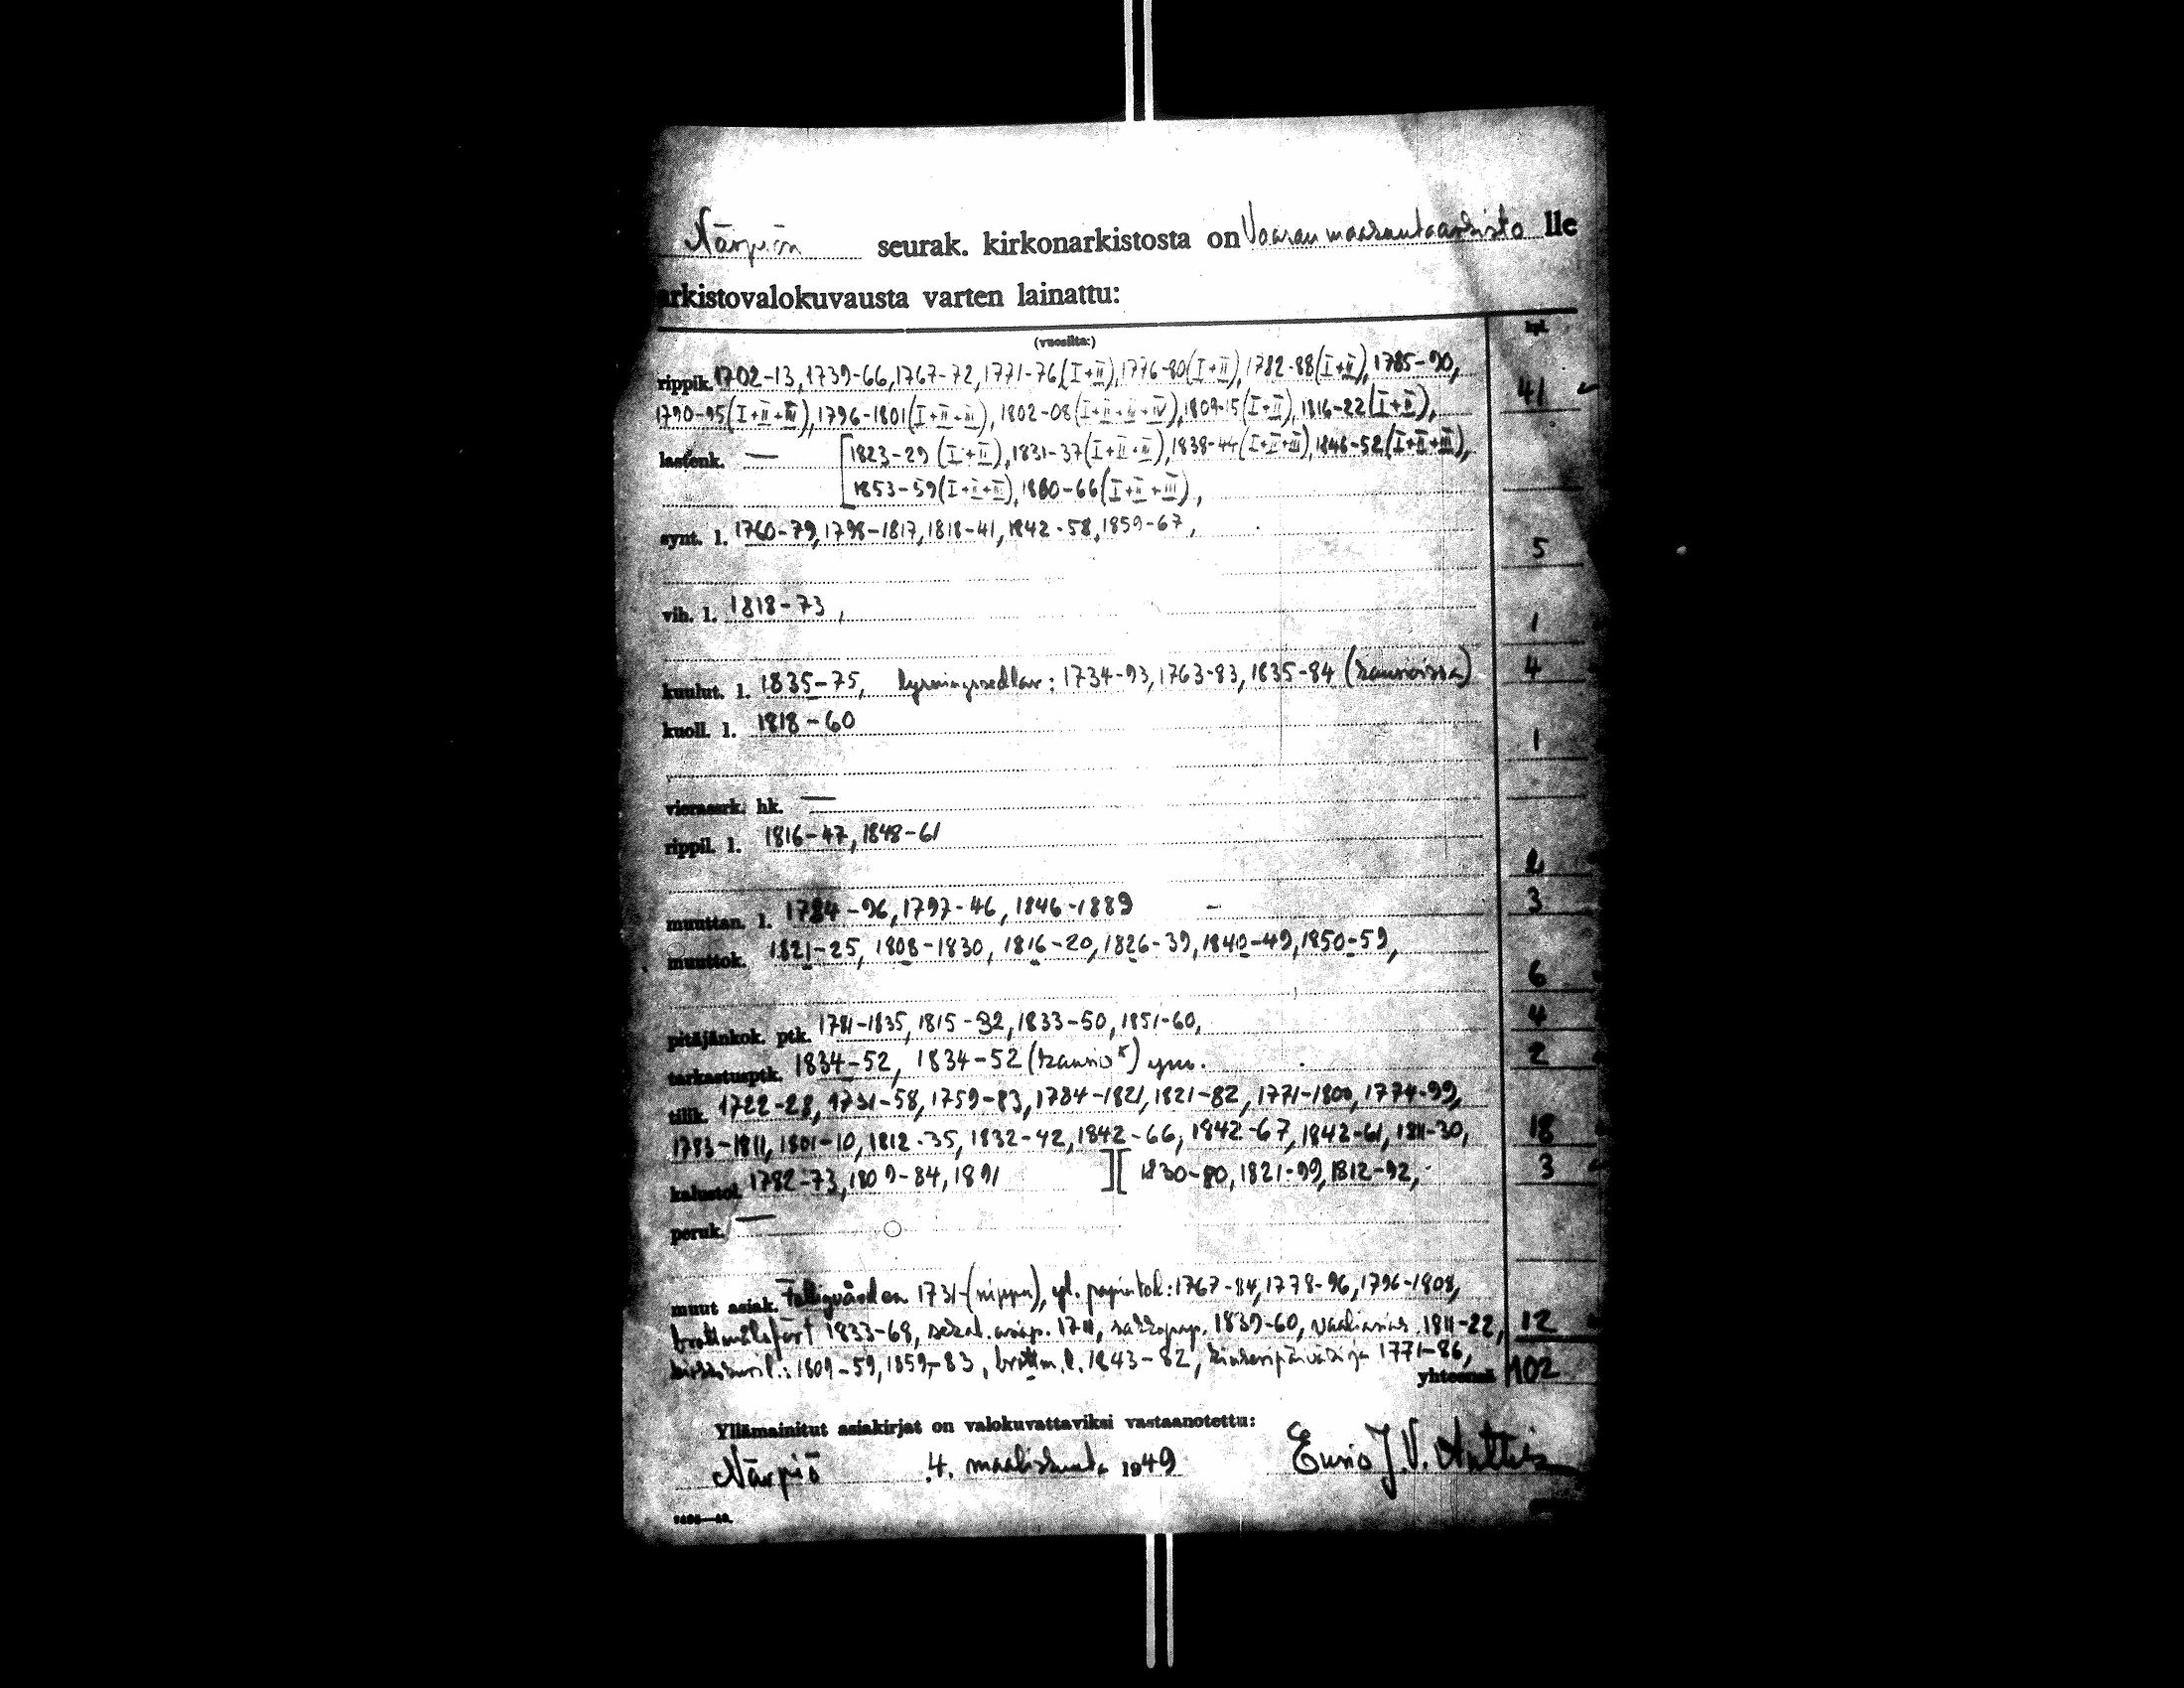 Närpiön seurak. kirkonarkistosta on Vaasan maakuntaarkisto lle
arkistovalokuvausta varten lainattu:
(vuosilta:) kpl.
rippik. 1702-13, 1739-66, 1767-72, 1771-76 (I+II), 1776-80 (I+II), 1782-88 (I+II), 1785-90,
1790-95 (I+II+III), 1796-1801 (I+II+III), 1802-08 (I+II+III+IV), 1809-15 (I+II), 1816-22 (I+II), 41
lastenk. — [1823-29 (I+II), 1831-37 (I+II+III), 1838-44 (I+II+III), 1846-52 (I+II+III),
1853-59 (I+II+III), 1860-66 (I+II+III),
synt. l. 1760-79, 1798-1817, 1818-41, 1842-58, 1859-67, 5
vih. l. 1818-73, 1
kuulut. l. 1835-75, lysningssedlar: 1734-93, 1763-83, 1835-84 (kansioissa) 4
kuoll. l. 1818-60 1
vierassrk. hk. —
rippil. l. 1816-47, 1848-61 2
muuttan. l. 1784-96, 1797-46, 1846-1889 - 3
muuttok. 1821-25, 1808-1830, 1816-20, 1826-39, 1840-49, 1850-59, 6
pitäjänkok. ptk. 1781-1835, 1815-32, 1833-50, 1851-60, 4
tarkastusptk. 1834-52, 1834-52 (kansio) ym. 2
tilik. 1722-28, 1731-58, 1759-83, 1784-1821, 1821-82, 1771-1800, 1774-99,
1783-1811, 1801-10, 1812-35, 1832-42, 1842-66, 1842-67, 1842-61, 1811-30, 18
kalustol. 1782-73, 1809-84, 1891 ][ 1830-80, 1821-99, 1812-92, 3
peruk. —
muut asiak. Fattigvården 1731- (nippu), 1767-84, 1778-96, 1796-1808,
1833-68, sekal. asiap. 1839-60, 1811-22, 12
1809-59, 1859-83, brottm. l. 1843-82, 1771-86,
yhteensä 102
Yllämainitut asiakirjat on valokuvattaviksi vastaanotettu:
Närpiö 4. maaliskuuta 1949 J. V.